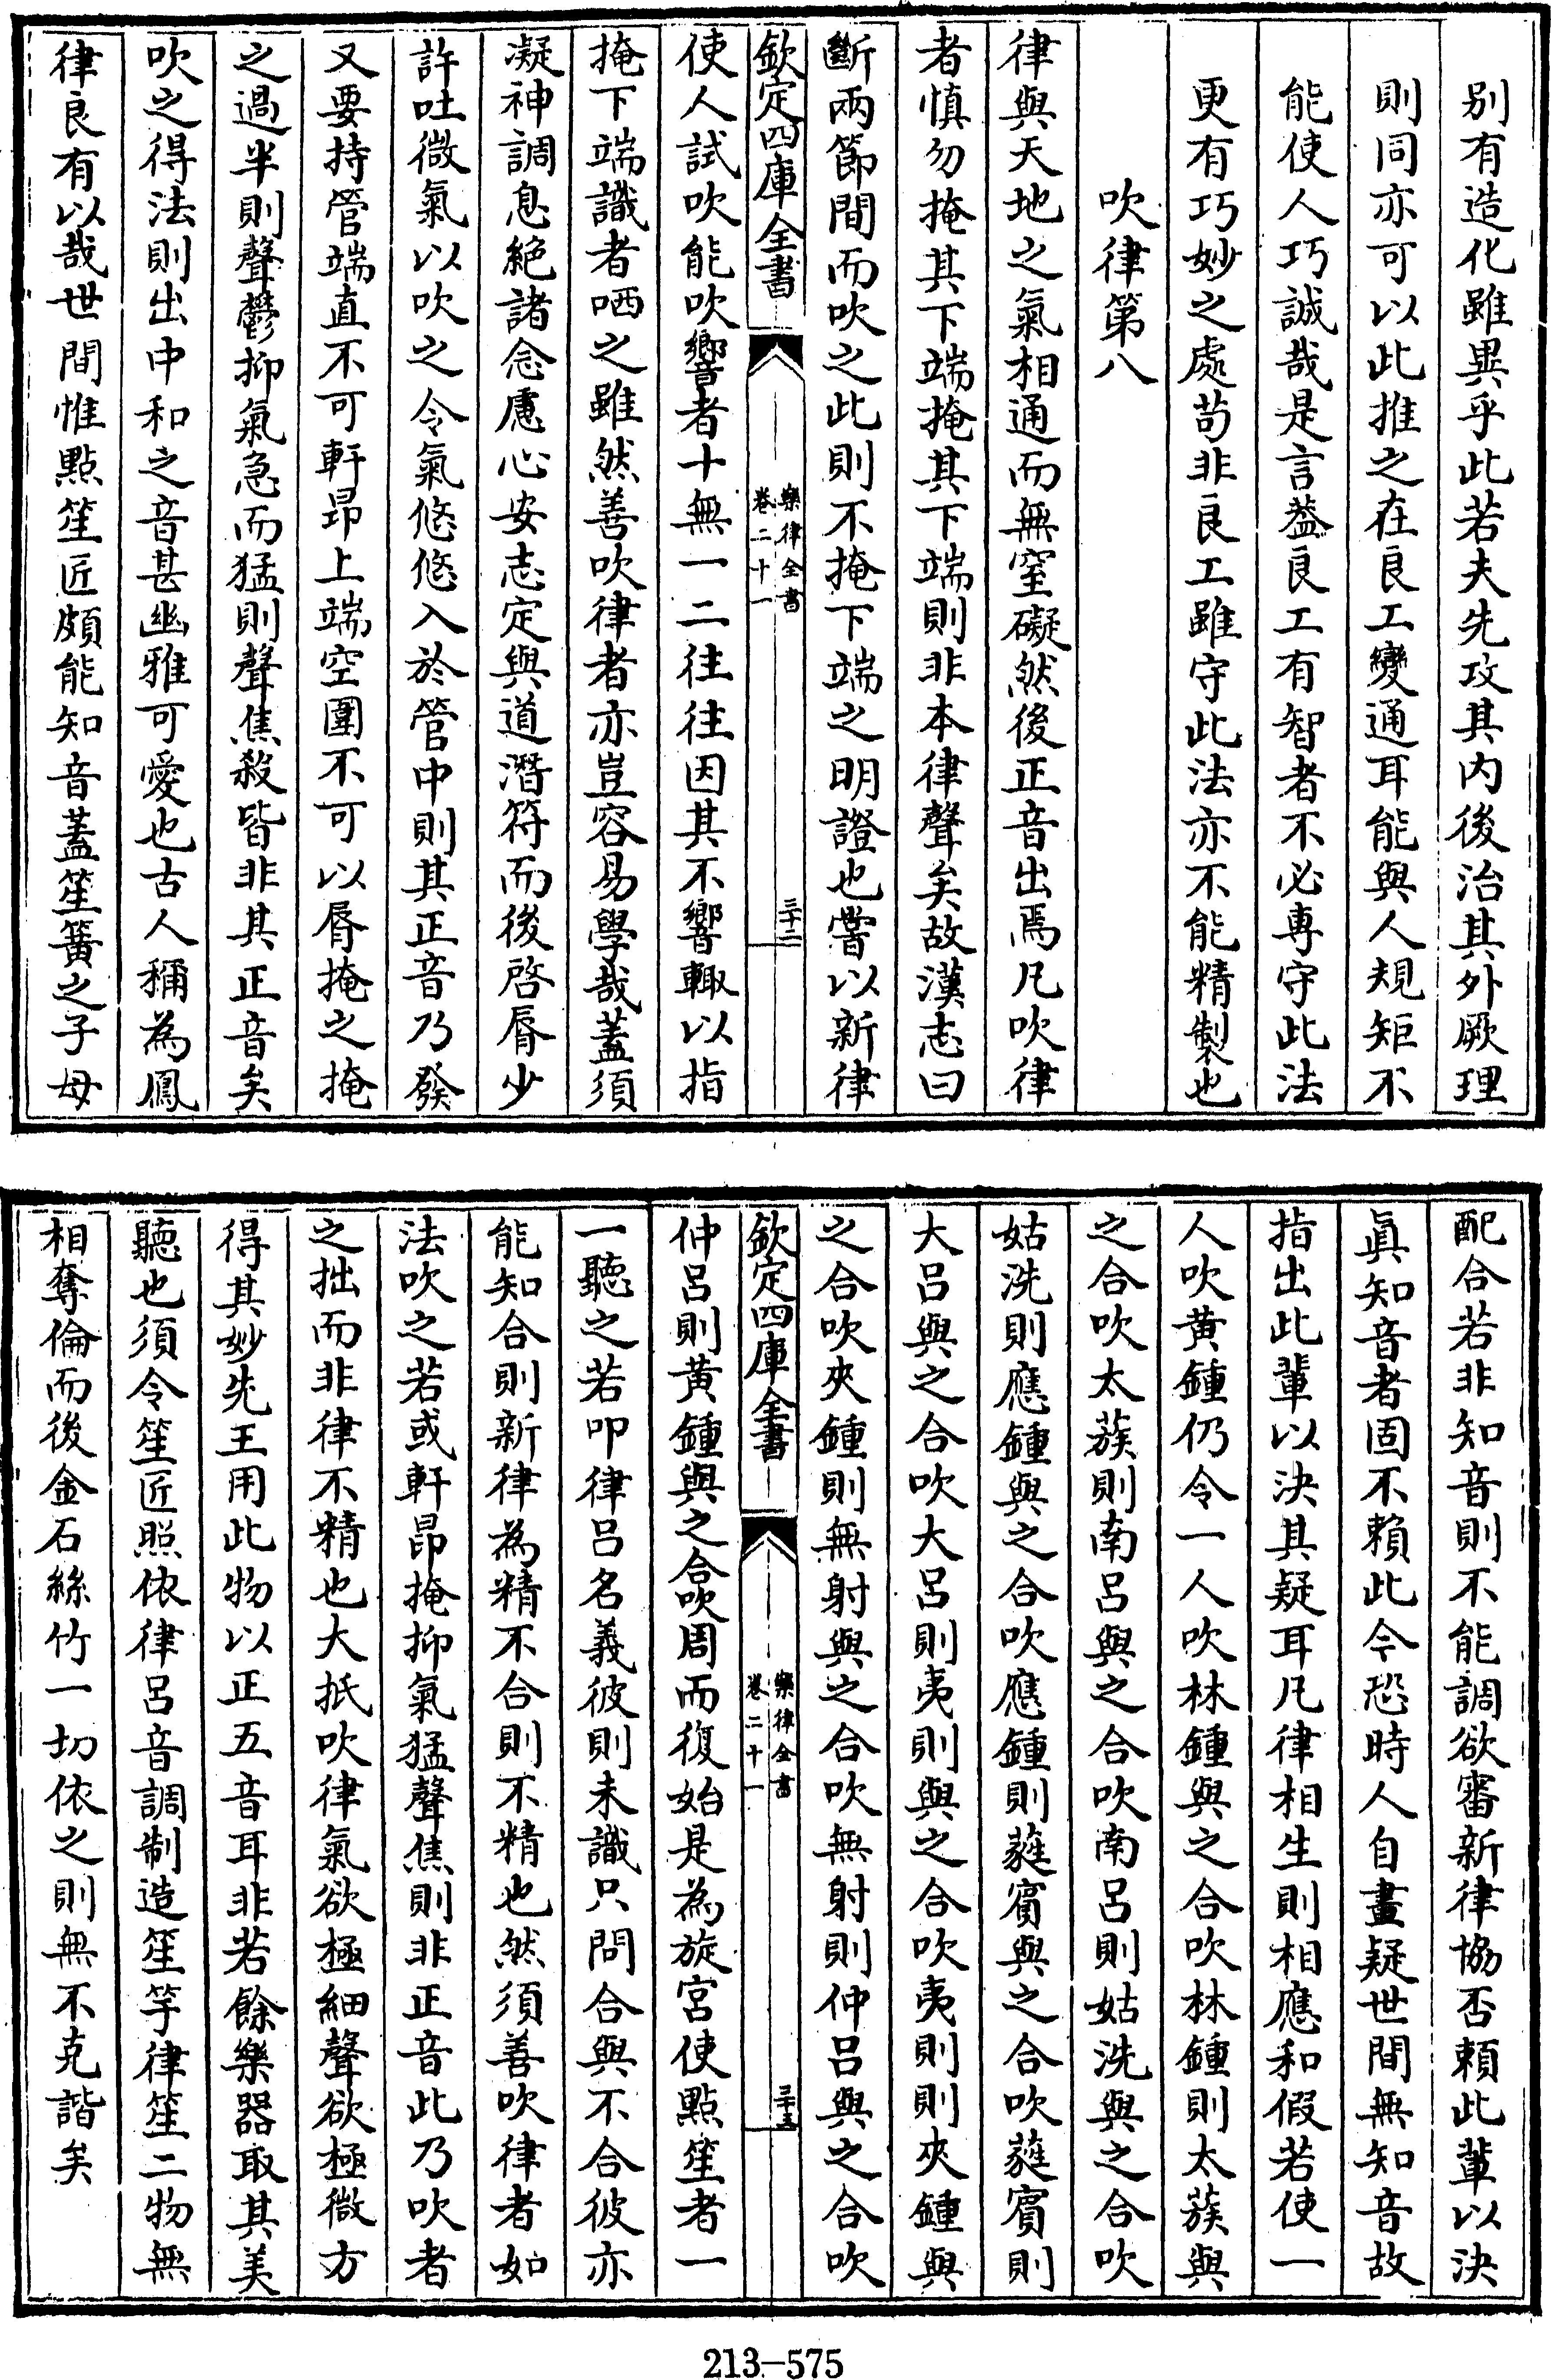 别有造化雖異乎此若夫先攻其内後治其外厥理
則同亦可以此推之在良工變通耳能與人規矩不
能使人巧誠哉是言葢良工有智者不必專守此法
更有巧妙之處苟非良工雖守此法亦不能精製也
吹律第八
律與天地之氣相通而無窒礙然後正音出焉凡吹律
者慎勿掩其下端掩其下端則非本律聲矣故漢志曰
斷兩節間而吹之此則不掩下端之明證也嘗以新律
欽定四庫全書
樂律全書
卷二十一
三十二
使人試吹能吹響者十無一二往往因其不響輙以指
掩下端識者哂之雖然善吹律者亦豈容易學哉蓋須
凝神調息絶諸念慮心安志定與道潛符而後啓脣少
許吐微氣以吹之令氣悠悠入於管中則其正音乃發
又要持管端直不可軒昂上端空圍不可以脣掩之掩
之過半則聲鬱抑氣急而猛則聲焦殺皆非其正音矣
吹之得法則出中和之音甚幽雅可愛也古人稱為鳳
律良有以哉世間惟點笙匠頗能知音蓋笙簧之子母
配合若非知音則不能調欲審新律協否賴此輩以決
眞知音者固不賴此今恐時人自畫疑世間無知音故
指出此輩以決其疑耳凡律相生則相應和假若使一
人吹黄鍾仍令一人吹林鍾與之合吹林鍾則太蔟與
之合吹太蔟則南呂與之合吹南呂則姑洗與之合吹
姑洗則應鍾與之合吹應鍾則蕤賓與之合吹蕤賓則
大呂與之合吹大呂則夷則與之合吹夷則則夾鍾與
之合吹夾鍾則無射與之合吹無射則仲呂與之合吹
欽定四庫全書
樂律全書
卷二十一
三十三
仲呂則黄鍾與之合吹周而復始是為旋宮使點笙者一
一聽之若叩律呂名義彼則未識只問合與不合彼亦
能知合則新律為精不合則不精也然須善吹律者如
法吹之若或軒昂掩抑氣猛聲焦則非正音此乃吹者
之拙而非律不精也大抵吹律氣欲極細聲欲極微方
得其妙先王用此物以正五音耳非若餘樂器取其美
聽也須令笙匠照依律呂音調制造笙竽律笙二物無
相奪倫而後金石絲竹一切依之則無不克諧矣
213—575